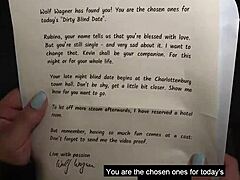 Wolf Wagner has found you! You are the chosen ones for
today's "Dirty Blind Date".
Rubina, your name tells us that you're blessed with love.
But you're still single - and very sad about it. I want to
change that. Kevin shall be your companion. For this
night or for your whole life.
Your late night blind date begins at the Charlottenburg
town hall. Don't be shy, get a little bit closer. Show me
how far you want to go.
To let off more steam afterwards, I have reserved a hotel
room.
But remember, having so much fun comes at a cost:
Don't forget to send me the video proof.
With passion
Wolf Wagner
You are the chosen ones for today's